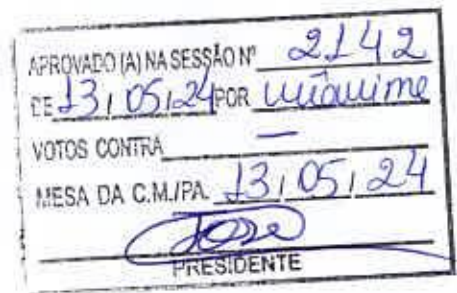 APROVADO (A) NA SESSÃO Nº 2142
DE 13/05/24 POR unânime
VOTOS CONTRA —
MESA DA C.M./PA. 13/05/24
PRESIDENTE